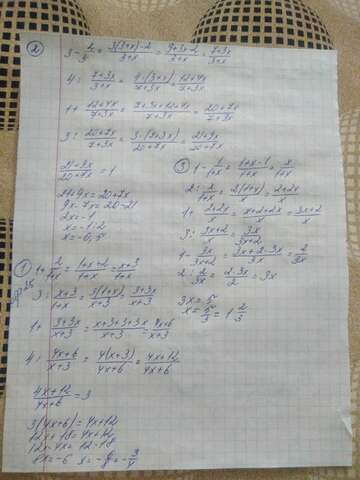 ②
3 - 2/3+x = 3(3+x)-2/3+x = 9+3x-2/3+x = 7+3x/3+x
4 : 7+3x/3+x = 4(3+x)/7+3x = 12+4x/7+3x
1 + 12+4x/7+3x = 7+3x+12+4x/7+3x = 20+7x/7+3x
3 : 20+7x/7+3x = 3·(7+3x)/20+7x = 21+9x/20+7x
21+9x/20+7x = 1
21+9x = 20+7x
9x-7x = 20-21
2x = -1
x = -1:2
x = -0,5
③ 1 - 1/1+x = 1+x-1/1+x = x/1+x
2 : x/1+x = 2(1+x)/x = 2+2x/x
1 + 2+2x/x = x+2+2x/x = 3x+2/x
3 : 3x+2/x = 3x/3x+2
1 - 3x/3x+2 = 3x+2-3x/3x+2 = 2/3x+2
3x = 5
x = 5/3 = 1 2/3
① 1 + 2/1+x = 1+x+2/1+x = x+3/1+x
3 : x+3/1+x = 3(1+x)/x+3 = 3+3x/x+3
1 + 3+3x/x+3 = x+3+3+3x/x+3 = 4x+6/x+3
4 : 4x+6/x+3 = 4(x+3)/4x+6 = 4x+12/4x+6
4x+12/4x+6 = 3
3(4x+6) = 4x+12
12x+18 = 4x+12
12x-4x = 12-18
8x = -6 x = -6/8 = -3/4